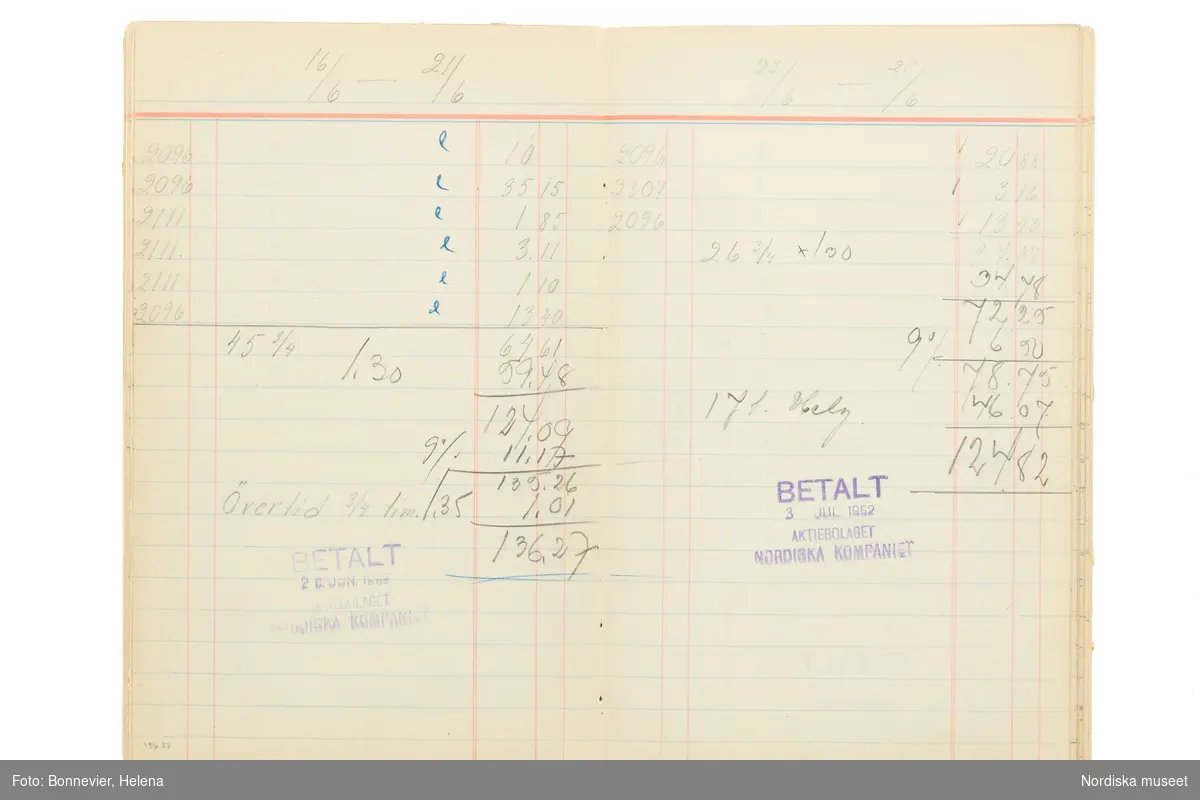 16/6 — 21/6
2096 10
2096 35 15
2111 1 85
2111. 3.11
2111 1 10
2096 13 40
64 61
45 3/4 1,30 59,48
124,09
9% 11,17
135,26
Övertid 3/4 tim. 1,35 1,01
136,27
BETALT
JUN. 1952
AKTIEBOLAGET
NORDISKA KOMPANIET
2096 20 88
2307 3 16
2096 13 43
26 3/4 x 130
34,78
72,25
9% 6 50
78.75
17 t. Helg. 46.07
124,82
BETALT
3 JUL 1952
AKTIEBOLAGET
NORDISKA KOMPANIET
Foto: Bonnevier, Helena
Nordiska museet